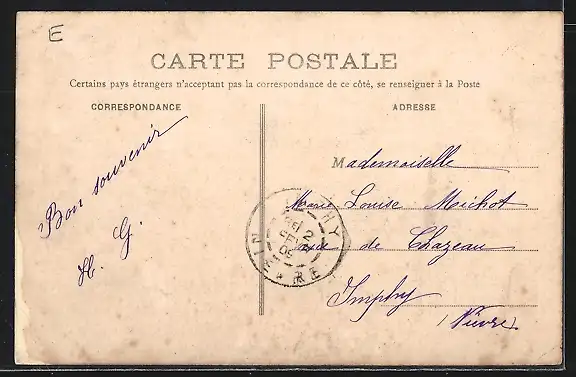 E
CARTE POSTALE
Certains pays étrangers n'acceptant pas la correspondance de ce côté, se renseigner à la Poste
CORRESPONDANCE
ADRESSE
Bon souvenir
H. G.
Mademoiselle
Marie Louise Michot
de Chazeau
Imphy
(Nièvre)